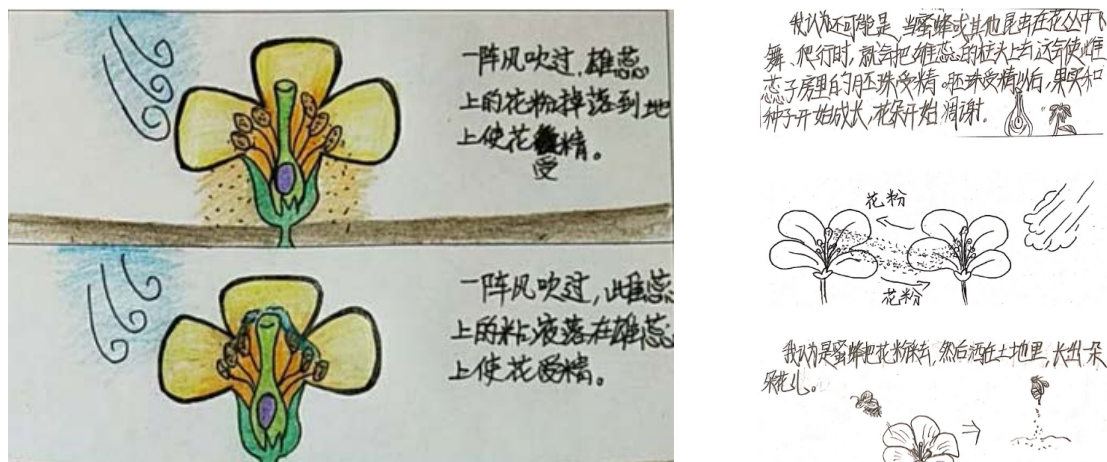 一阵风吹过,雄蕊
上的花粉掉落到地
上使花受精。
一阵风吹过,雌蕊
上的粘液落在雄蕊
上使花受精。
我认为还可能是,当蜜蜂或其他昆虫在花丛中飞
舞、爬行时,就会把雄蕊的柱头上去这会使雌
蕊子房里的胚珠受精。胚珠受精以后,果实和
种子开始成长,花朵开始凋谢。
花粉
花粉
我认为是蜜蜂把花粉,然后洒在土地里,长出一朵
朵花儿。